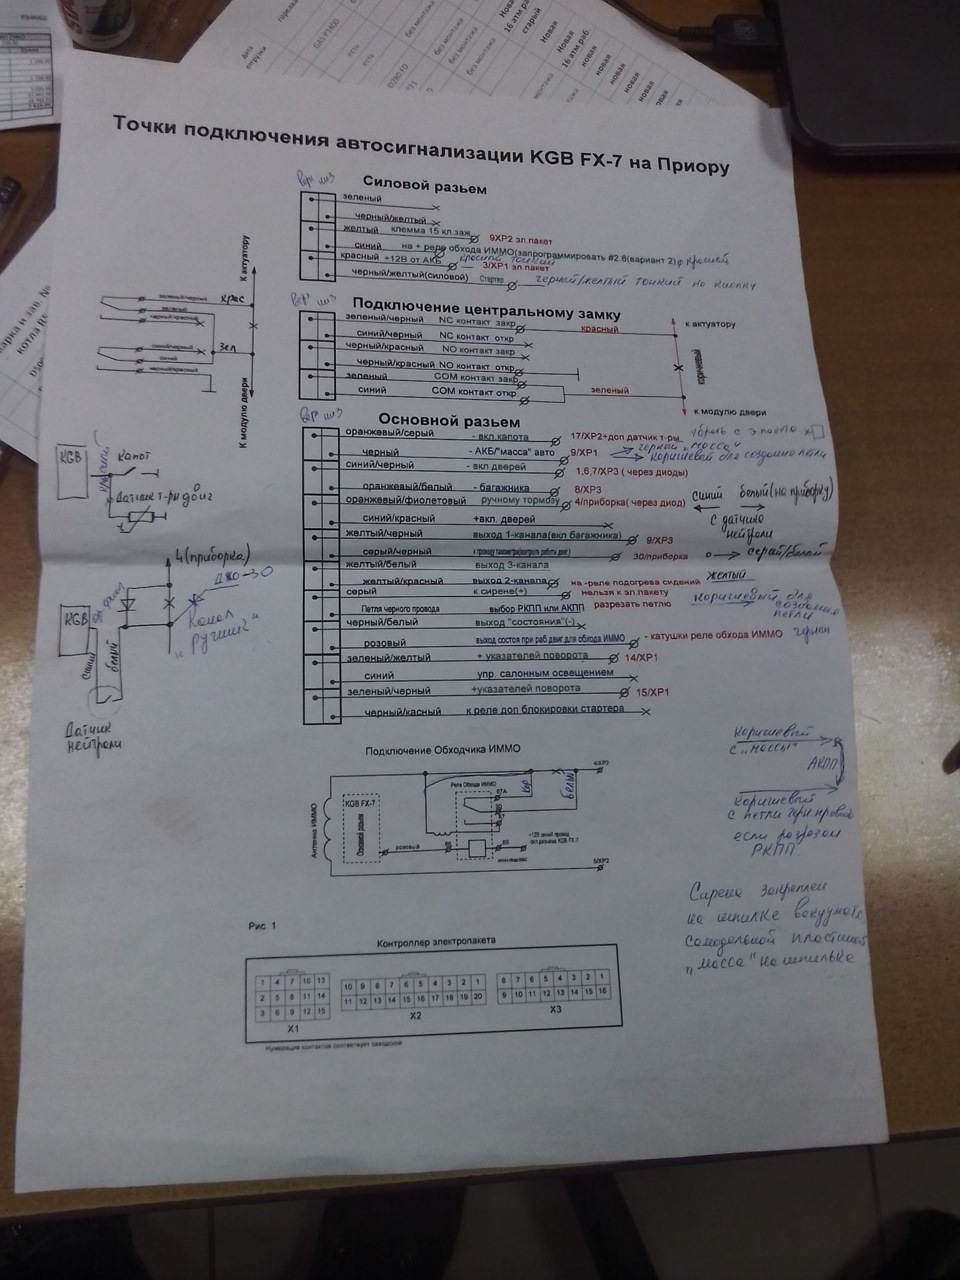 Точки подключения автосигнализации KGB FX-7 на Приору
Силовой разьем
зеленый
черный/желтый
желтый клемма 15 кл заж. 9XP2 эл.пакет
синий на + реле обхода ИММО(запрограммировать #2.6(вариант 2) красный
красный +12В от АКБ красный тонкий
3/XP1 эл.пакет
черный/желтый(силовой) Стартер черный/желтый тонкий на кнопку
Подключение центральному замку
зеленый/черный NC контакт закр красный
синий/черный NC контакт откр
черный/красный NO контакт закр
черный/красный NO контакт откр
зеленый COM контакт закр
синий COM контакт откр зеленый
к актуатору
коричневый
к модулю двери
К актуатору
крас
зел
К модулю двери
зеленый/черный
зеленый
черный/красный
синий/черный
синий
черный/красный
Основной разьем
оранжевый/серый - вкл.капота 17/XP2+доп датчик т-ры
черный - АКБ/"масса" авто 9/XP1 черный "масса"
коричневый для создания петли
синий/черный - вкл дверей 1,6,7/XP3 ( через диоды)
оранжевый/белый - багажника 8/XP3
оранжевый/фиолетовый ручному тормозу 4/приборка( через диод)
синий/красный +вкл. дверей
желтый/черный выход 1-канала(вкл багажника) 9/XP3
серый/черный к проводу тахометра(контроль работы двиг.) 30/приборка серый/белый
желтый/белый выход 3-канала
желтый/красный выход 2-канала на -реле подогрева сидений желтый
серый к сирене(+) нельзя к эл.пакету
Петля черного провода выбор РКПП или АКПП разрезать петлю
коричневый для создания петли
черный/белый выход "состояния"(-)
розовый выход состоя при раб двиг для обхода ИММО - катушки реле обхода ИММО
зеленый/желтый + указателей поворота 14/XP1
синий упр. салонным освещением
зеленый/черный +указателей поворота 15/XP1
черный/касный к реле доп блокировки стартера
синий белый(на приборку)
с датчика
нейтрали
KGB
Капот
Датчик т-ры двиг
4(приборка)
KGB
синий
белый
Канал
"Ручник"
Датчик
нейтрали
Подключение Обходчика ИММО
Антенна ИММО
KGB FX-7
Основной разьем
розовый
Реле Обхода ИММО
87A
85
кор
белый
4/XP2
+12В синий провод
5/XP2
Коричневый
с "массы"
АКПП
Коричневый
с петли черн провода
если разрезан
РКПП.
Сирена закреплен
на шпильке вакуумата
самодельной пластиной
"масса" на шпильке
Рис 1
Контроллер электропакета
1 4 7 10 13
2 5 8 11 14
3 6 9 12 15
X1
10 9 8 7 6 5 4 3 2 1
11 12 13 14 15 16 17 18 19 20
X2
8 7 6 5 4 3 2 1
9 10 11 12 13 14 15 16
X3
Нумерация контактов соответствует заводской